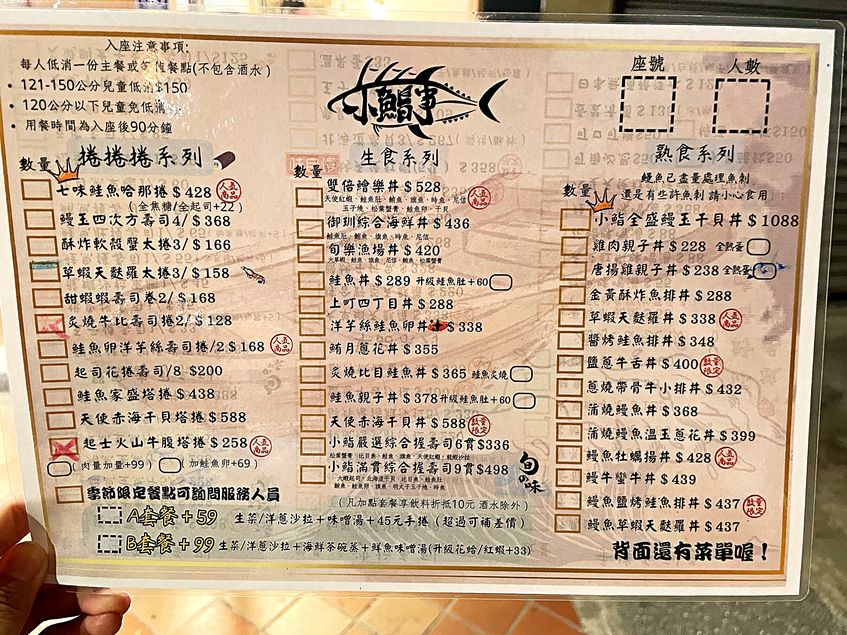 入座注意事項:
每人低消一份主餐或等值餐點(不包含酒水)
• 121-150公分兒童低消$150
• 120公分以下兒童免低消
• 用餐時間為入座後90分鐘
小鮨事
座號
人數
數量
捲捲捲系列
七味鮭魚哈那捲 $ 428 人氣商品
(全焦糖/全起司+22)
鰻玉四次方壽司4/ $ 368
酥炸軟殼蟹太捲3/ $ 166
草蝦天麩羅太捲3/ $ 158
甜蝦蝦壽司卷2/ $ 168
炙燒牛比壽司捲2/ $ 128
鮭魚卵洋芋絲壽司捲/2 $ 168 人氣商品
起司花捲壽司/8 $200
鮭魚家盛塔捲 $ 438
天使赤海干貝塔捲 $ 588
起士火山牛腹塔捲 $ 258 人氣商品
(肉量加量+99) (加鮭魚卵+69)
季節限定餐點可詢問服務人員
數量
生食系列
雙倍繒樂丼 $ 528 人氣商品
御琍綜合海鮮丼 $ 436
旬樂漁場丼 $ 420
鮭魚丼 $ 289 升級鮭魚肚+60
上町四丁目丼 $ 288
洋芋絲鮭魚卵丼 $ 338
鮪月蔥花丼 $ 355
炙燒比目鮭魚丼 $ 365 鮭魚炙燒
鮭魚親子丼 $ 378 升級鮭魚肚+60
天使赤海干貝丼 $ 588 數量限定
小鮨嚴選綜合握壽司6貫$336
小鮨滿貫綜合握壽司9貫$498
旬の味
數量
熟食系列
鰻魚已盡量處理魚刺
還是有些許魚刺 請小心食用
小鮨全盛鰻玉干貝丼 $ 1088
雞肉親子丼 $ 228 全熟蛋
唐揚雞親子丼 $ 238 全熟蛋
金黃酥炸魚排丼 $ 288
草蝦天麩羅丼 $ 338 人氣商品
醬烤鮭魚排丼 $ 348
鹽蔥牛舌丼 $ 400 數量限定
蔥燒帶骨牛小排丼 $ 432
蒲燒鰻魚丼 $ 368
蒲燒鰻魚溫玉蔥花丼 $ 399
鰻魚牡蠣揚丼 $ 428 人氣商品
鰻牛蠻牛丼 $ 439
鰻魚鹽烤鮭魚排丼 $ 437 數量限定
鰻魚草蝦天麩羅丼 $ 437
(凡加點套餐享飲料折抵10元 酒水除外)
A套餐+59 生菜/洋蔥沙拉+味噌湯+45元手捲 (超過可補差價)
B套餐+99 生菜/洋蔥沙拉+海鮮茶碗蒸+鮮魚味噌湯(升級花蛤/紅蝦+33)
背面還有菜單喔!